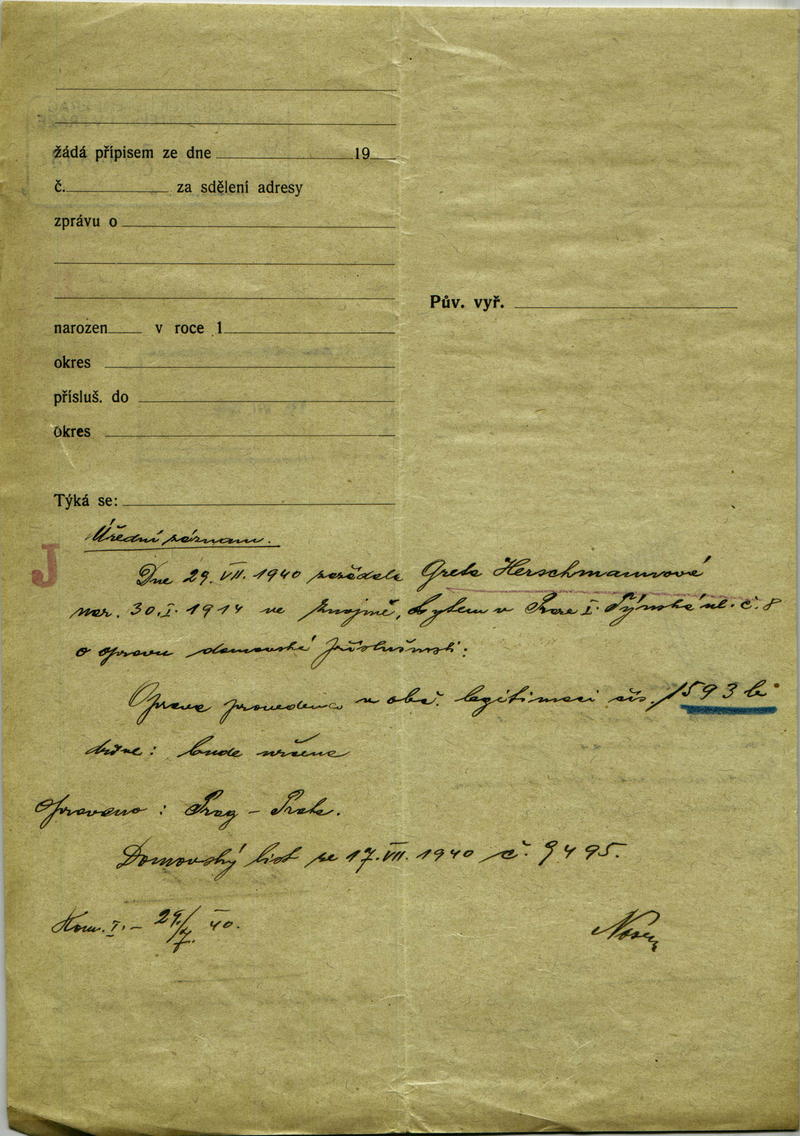 žádá přípisem ze dne 19
č. za sdělení adresy
zprávu o
Pův. vyř.
narozen v roce 1
okres
přísluš. do
okres
Týká se:
Úřední záznam.
J
Dne 29. VII. 1940 zažádala Greta Herschmannová
nar. 30. I. 1914 ve Znojmě, bytem v Praze I. Týnská ul. č. 8
o opravu domovské příslušnosti.
Oprava provedena v obč. legitimaci čís. 1593 b
bude vrácena
Opraveno: Prag - Praha.
Domovský list ze 17. VII. 1940 č. 9495.
Kom. I. - 29/7. 40.